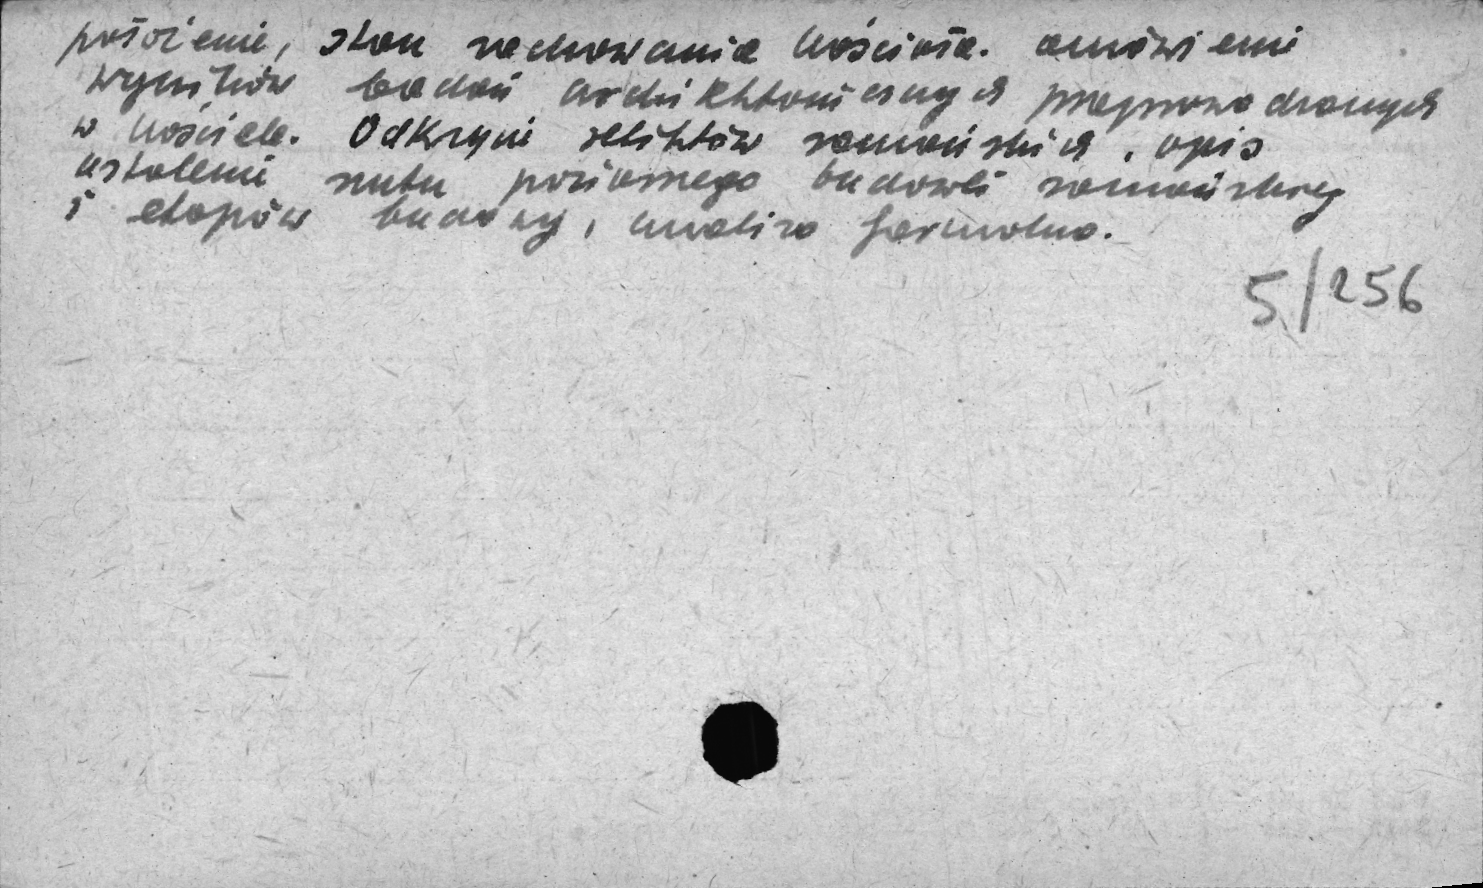 położenie, stan zachowania kościoła. omówienie
wyników badań architektonicznych przeprowadzonych
w kościele. Odkrycie reliktów romańskich, opis
ustalenie rzutu poziomego budowli romańskiej
i etapów budowy, analiza formalna.
5/256